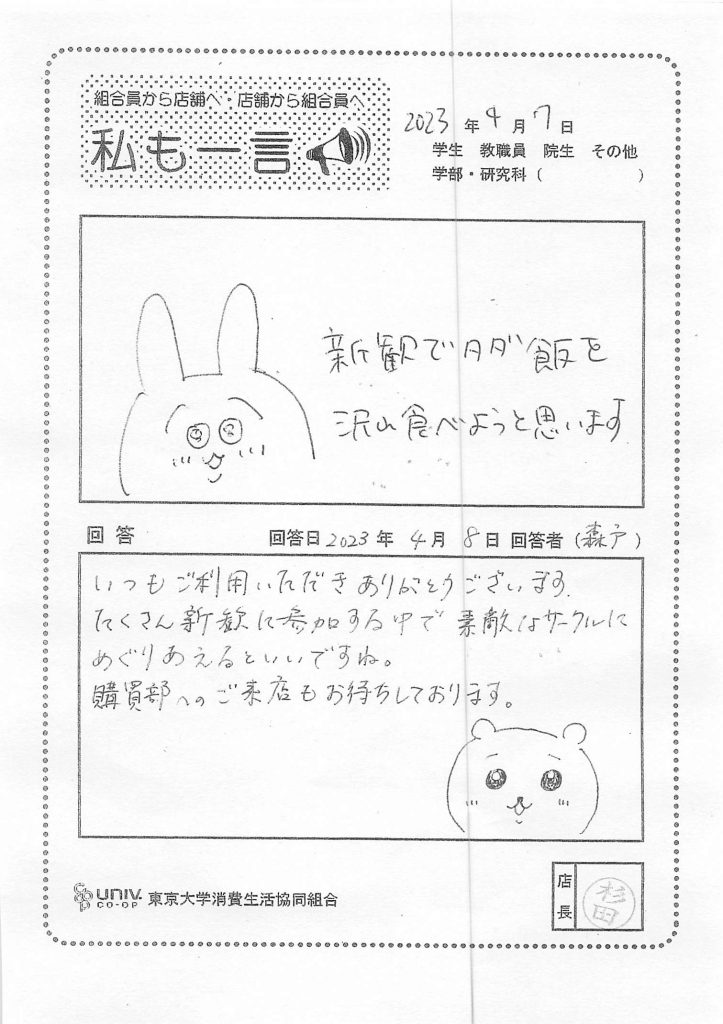 組合員から店舗へ・店舗から組合員へ
私も一言
2023年4月7日
学生 教職員 院生 その他
学部・研究科( )
新観でタダ飯を
沢山食べようと思います
回答 回答日2023年4月8日 回答者(森戸)
いつもご利用いただきありがとうございます。
たくさん新歓に参加する中で素敵なサークルに
めぐりあえるといいですね。
購買部へのご来店もお待ちしております。
UNIV. CO-OP 東京大学消費生活協同組合
店長 杉田